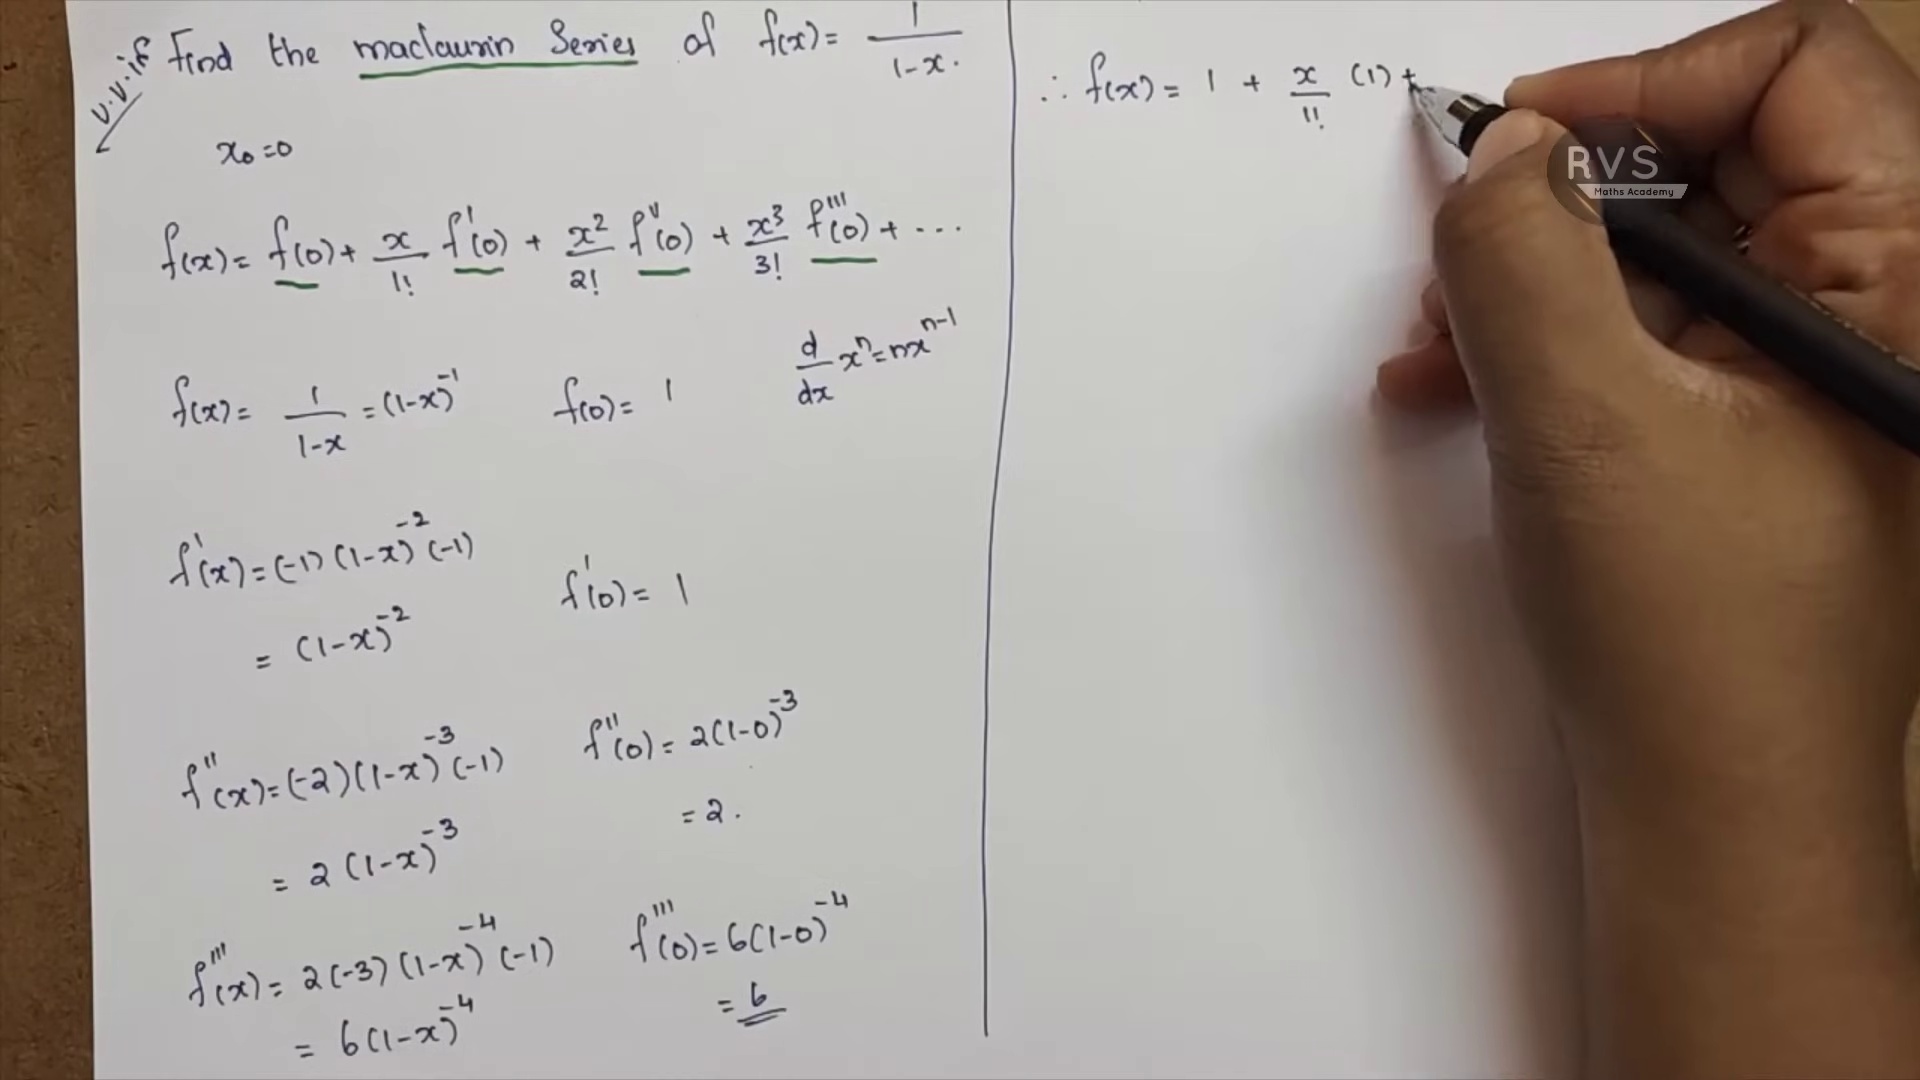 v.v.if Find the maclaurin Series of f(x)= 1/(1-x).
x₀=0
f(x)= f(0)+ x/1! f'(0) + x²/2! f''(0) + x³/3! f'''(0) + ...
d/dx xⁿ=nxⁿ⁻¹
f(x)= 1/(1-x) =(1-x)⁻¹ f(0)= 1
f'(x)=(-1)(1-x)⁻²(-1)
= (1-x)⁻² f'(0)= 1
f''(x)=(-2)(1-x)⁻³(-1) f''(0)= 2(1-0)⁻³
= 2(1-x)⁻³ =2.
f'''(x)= 2(-3)(1-x)⁻⁴(-1) f'''(0)=6(1-0)⁻⁴
= 6(1-x)⁻⁴ =6
∴ f(x)= 1 + x/1! (1) +
RVS
Maths Academy